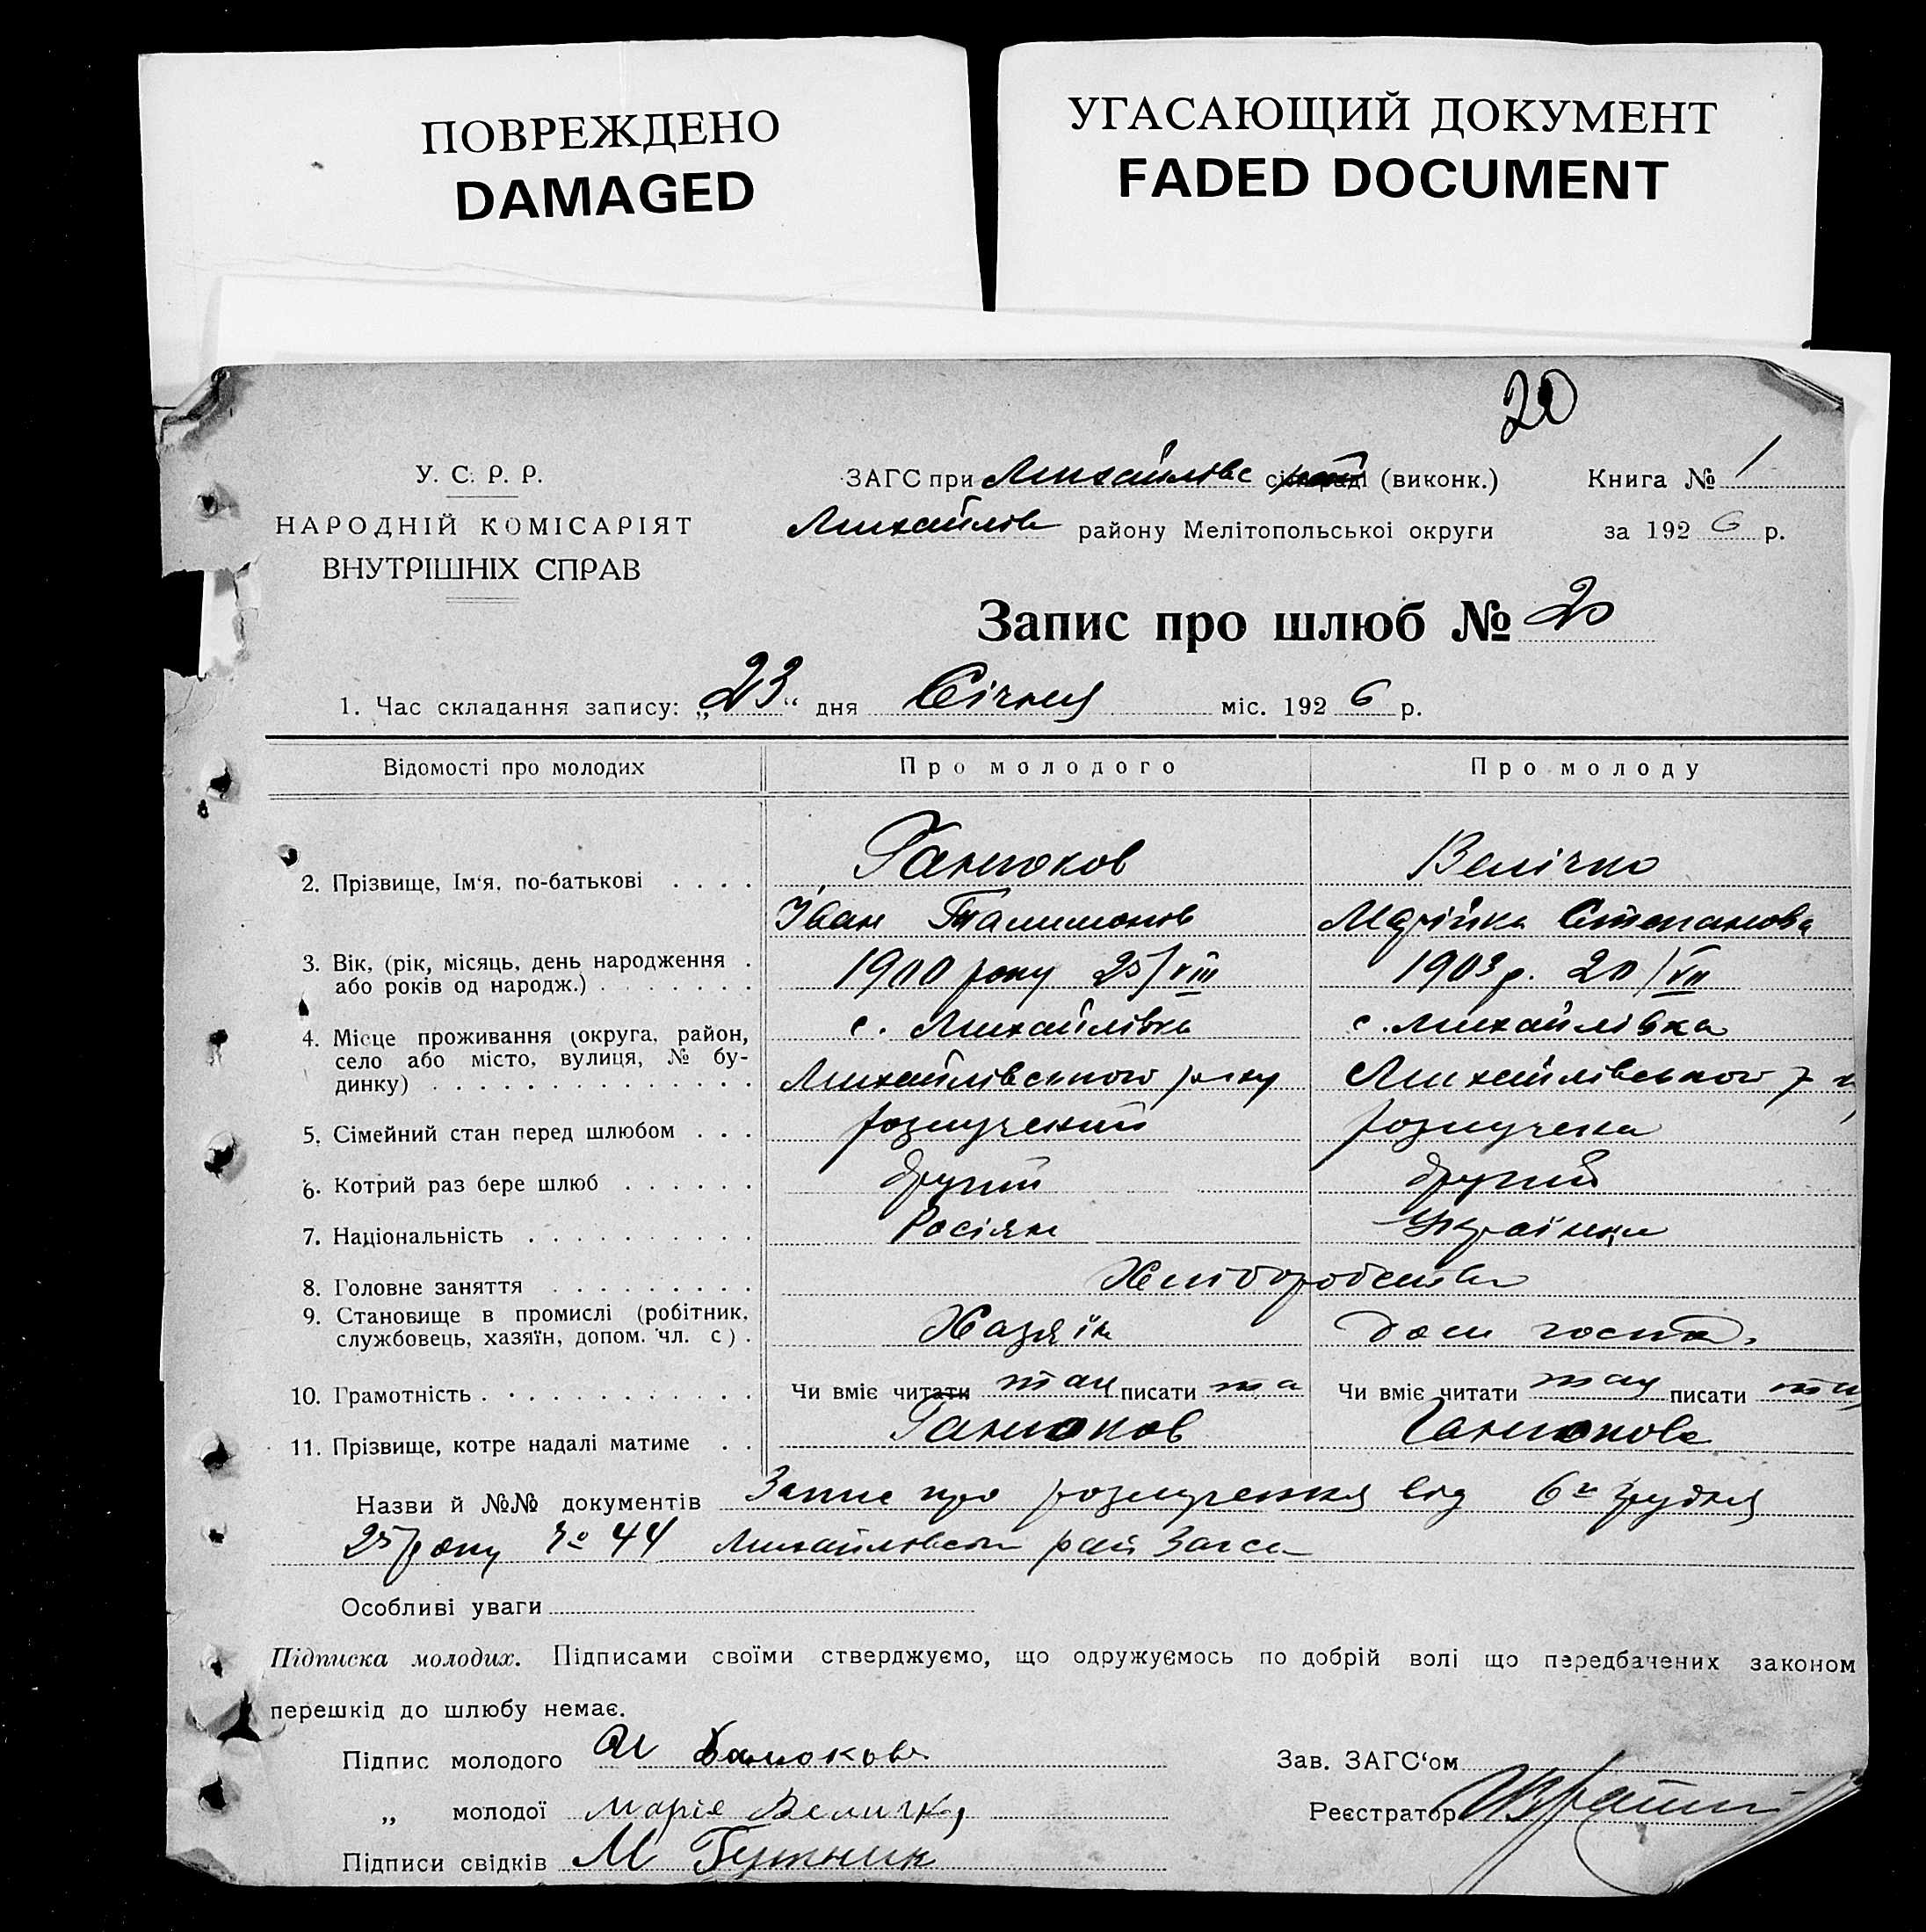 ПОВРЕЖДЕНО
DAMAGED
УГАСАЮЩИЙ ДОКУМЕНТ
FADED DOCUMENT
20
У. С. Р. Р.
НАРОДНІЙ КОМІСАРІЯТ
ВНУТРІШНІХ СПРАВ
ЗАГС при Михайлівс (виконк.)
Книга № 1
Михайлів району Мелітопольської округи
за 1926 р.
Запис про шлюб № 20
1. Час складання запису: „23“ дня Січня міс. 1926 р.
Відомості про молодих
Про молодого
Про молоду
2. Прізвище, Ім'я, по-батькові
Ганюков
Велічко
Іван
Марійка Степанова
3. Вік, (рік, місяць, день народження
або років од народж.)
1900 року 25/VIII
1903 р. 20/VII
4. Місце проживання (округа, район,
село або місто, вулиця, № бу-
динку)
с. Михайлівка
с. Михайлівка
Михайлівського р-ну
Михайлівського
5. Сімейний стан перед шлюбом
розлучений
розлучена
6. Котрий раз бере шлюб
другий
другий
7. Національність
Росіян
Українка
8. Головне заняття
Хліборобство
9. Становище в промислі (робітник,
службовець, хазяїн, допом. чл. с)
Хазяїн
дом госпо.
10. Грамотність
Чи вміє читати так писати та
Чи вміє читати так писати так
11. Прізвище, котре надалі матиме
Ганюков
Ганюкова
Назви й №№ документів Запис про розлучення від 6го грудня
25 року № 44 Михайловськ рай Загса
Особливі уваги
Підписка молодих. Підписами своїми стверджуємо, що одружуємось по добрій волі що передбачених законом
перешкід до шлюбу немає.
Підпис молодого
Зав. ЗАГС'ом
„ молодої марія Величк
Реєстратор
Підписи свідків М Бутник